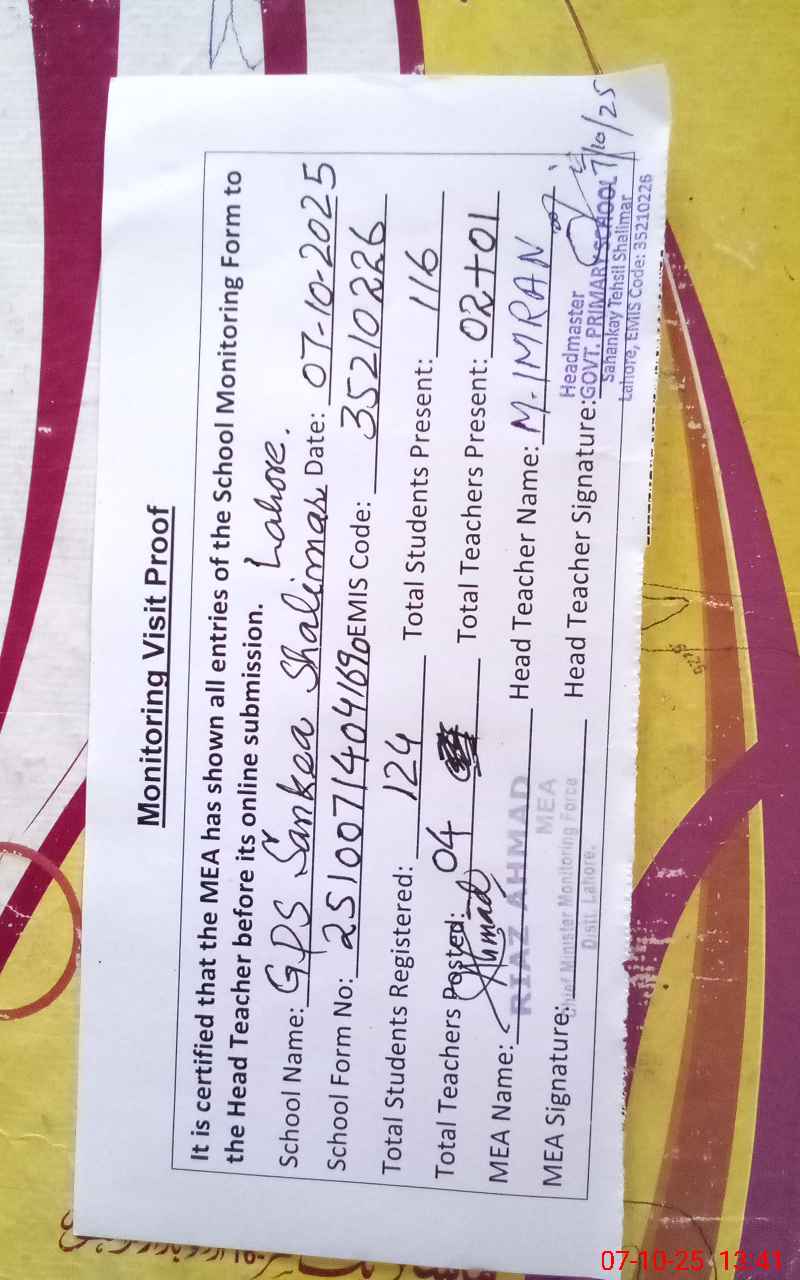 Monitoring Visit Proof
It is certified that the MEA has shown all entries of the School Monitoring Form to
the Head Teacher before its online submission.
Lahore.
School Name: GPS Sankea Shalimar Date: 07-10-2025
School Form No: 2510071404169 EMIS Code: 35210226
Total Students Registered: 124 Total Students Present: 116
Total Teachers Posted: 04 Total Teachers Present: 02+01
MEA Name: RIAZ AHMAD Head Teacher Name: M. IMRAN
MEA
Chief Minister Monitoring Force
Distt. Lahore.
MEA Signature: Head Teacher Signature:
Headmaster
GOVT. PRIMARY SCHOOL 7/10/25
Sahankay Tehsil Shalimar
Lahore, EMIS Code: 35210226
07-10-25 13:41